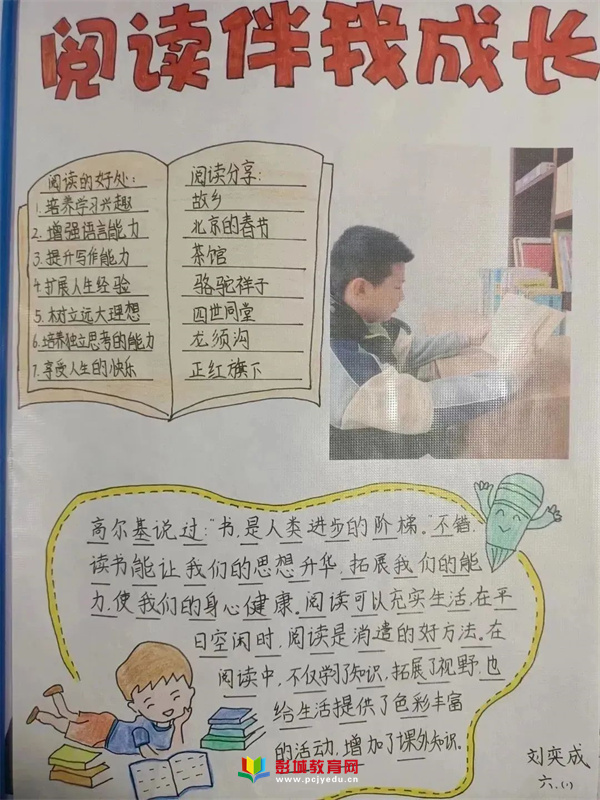 阅读伴我成长
阅读的好处:
1.培养学习兴趣
2.增强语言能力
3.提升写作能力
4.扩展人生经验
5.树立远大理想
6.培养独立思考的能力
7.享受人生的快乐
阅读分享:
故乡
北京的春节
茶馆
骆驼祥子
四世同堂
龙须沟
正红旗下
高尔基说过:"书,是人类进步的阶梯。"不错,
读书能让我们的思想升华,拓展我们的能
力,使我们的身心健康。阅读可以充实生活,在平
日空闲时,阅读是消遣的好方法。在
阅读中,不仅学了知识,拓展了视野,也
给生活提供了色彩丰富
的活动,增加了课外知识。
刘奕成
六.(1)
彭城教育网
www.pcjyedu.cn